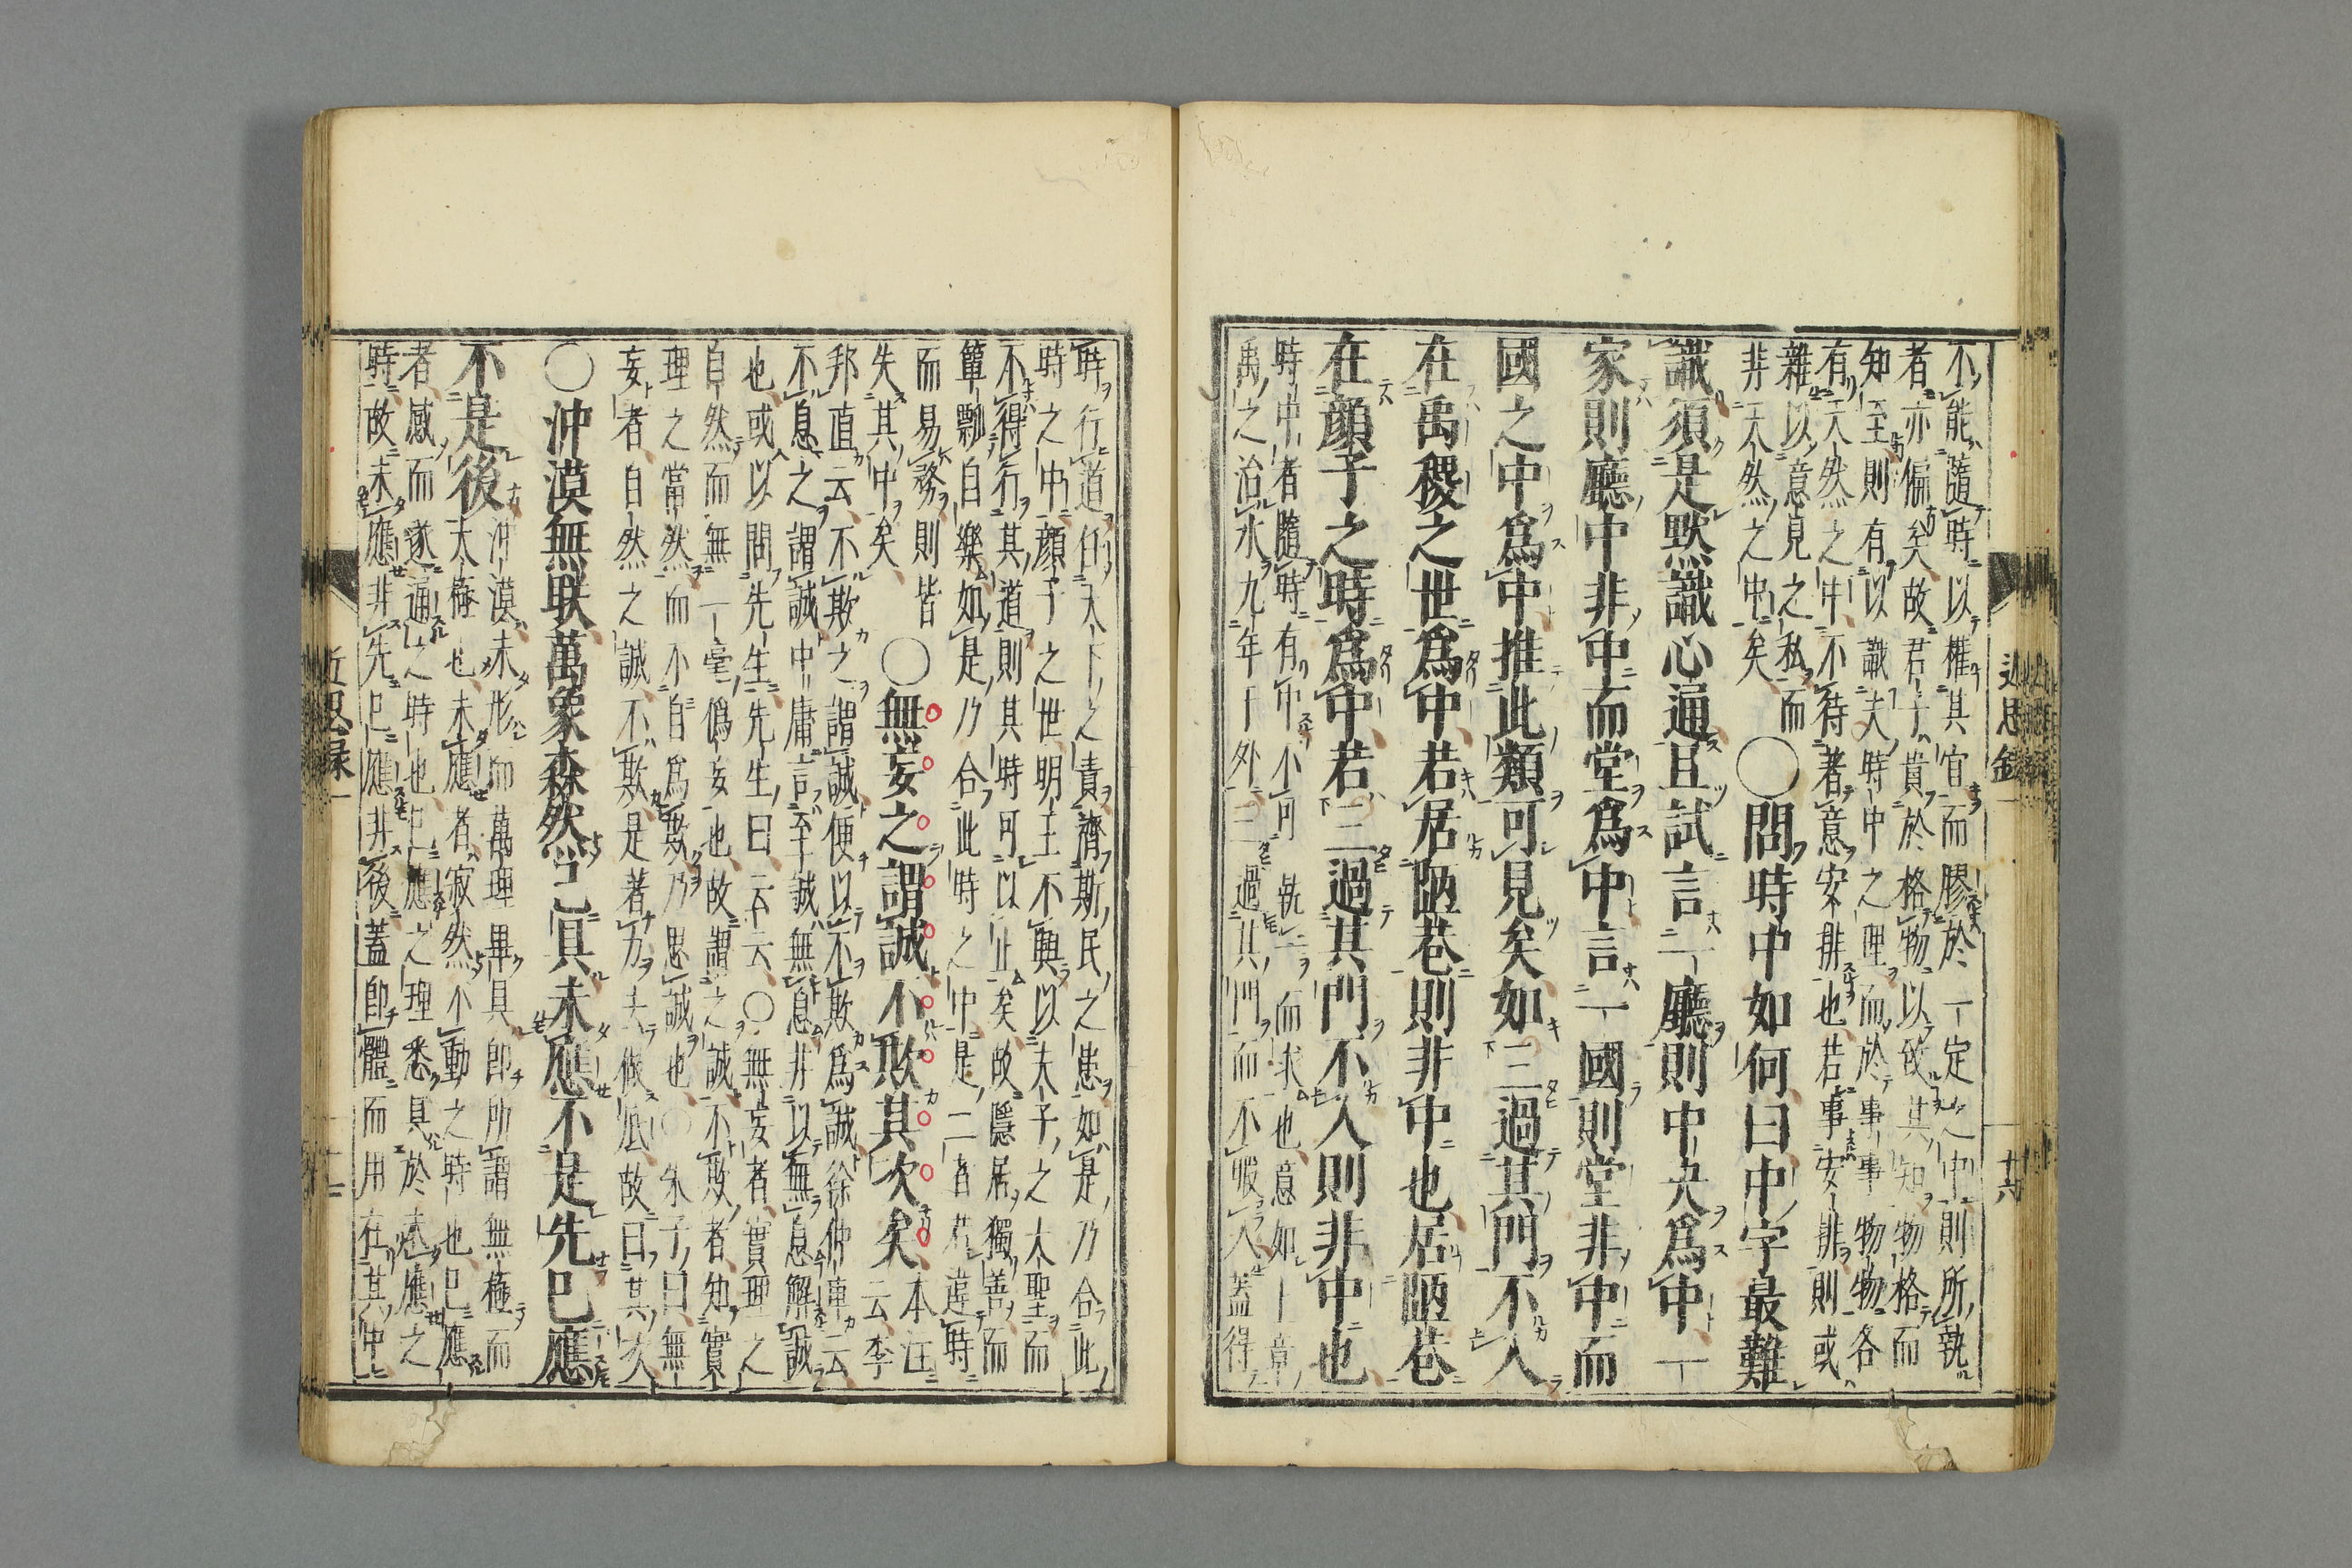 不能隨時以權其宜而膠於一定之中則所執
者亦偏矣故君子貴於格物以致其知物格而
知至則有以識夫時中之理而於事事物物各
有天然之中不待著意安排也若事安排則或
雜以意見之私而
非天然之中矣
○問時中如何曰中字最難
識須是默識心通且試言一廳則中央爲中一
家則廳中非中而堂爲中言一國則堂非中而
國之中爲中推此類可見矣如三過其門不入
在禹稷之世爲中若居陋巷則非中也居陋巷
在顔子之時爲中若三過其門不入則非中也
時中者隨時有中不可執一而求也意如上章
禹之治水九年于外三過其門而不暇入蓋得
近思録一
十六
時行道任天下之責濟斯民之患如是乃合此
時之中顔子之世明王不興以夫子之大聖而
不得行其道則其時可以止矣故隱居獨善而
簞瓢自樂如是乃合此時之中是二者若違時
而易務則皆
失其中矣
○無妄之謂誠不欺其次矣
本註
云李
邦直云不欺之謂誠便以不欺爲誠徐仲車云
不息之謂誠中庸言至誠無息非以無息解誠
也或以問先生先生曰云云○無妄者實理之
自然而無一毫僞妄也故謂之誠不欺者知實
理之當然而不自爲欺乃思誠也○朱子曰無
妄者自然之誠不欺是著力去做底故曰其次
○沖漠無朕萬象森然已具未應不是先已應
不是後
沖漠未形而萬理畢具即所謂無極而
太極也未應者寂然不動之時也已應
者感而遂通之時也已應之理悉具於未應之
時故未應非先已應非後蓋即體而用在其中
近思録一